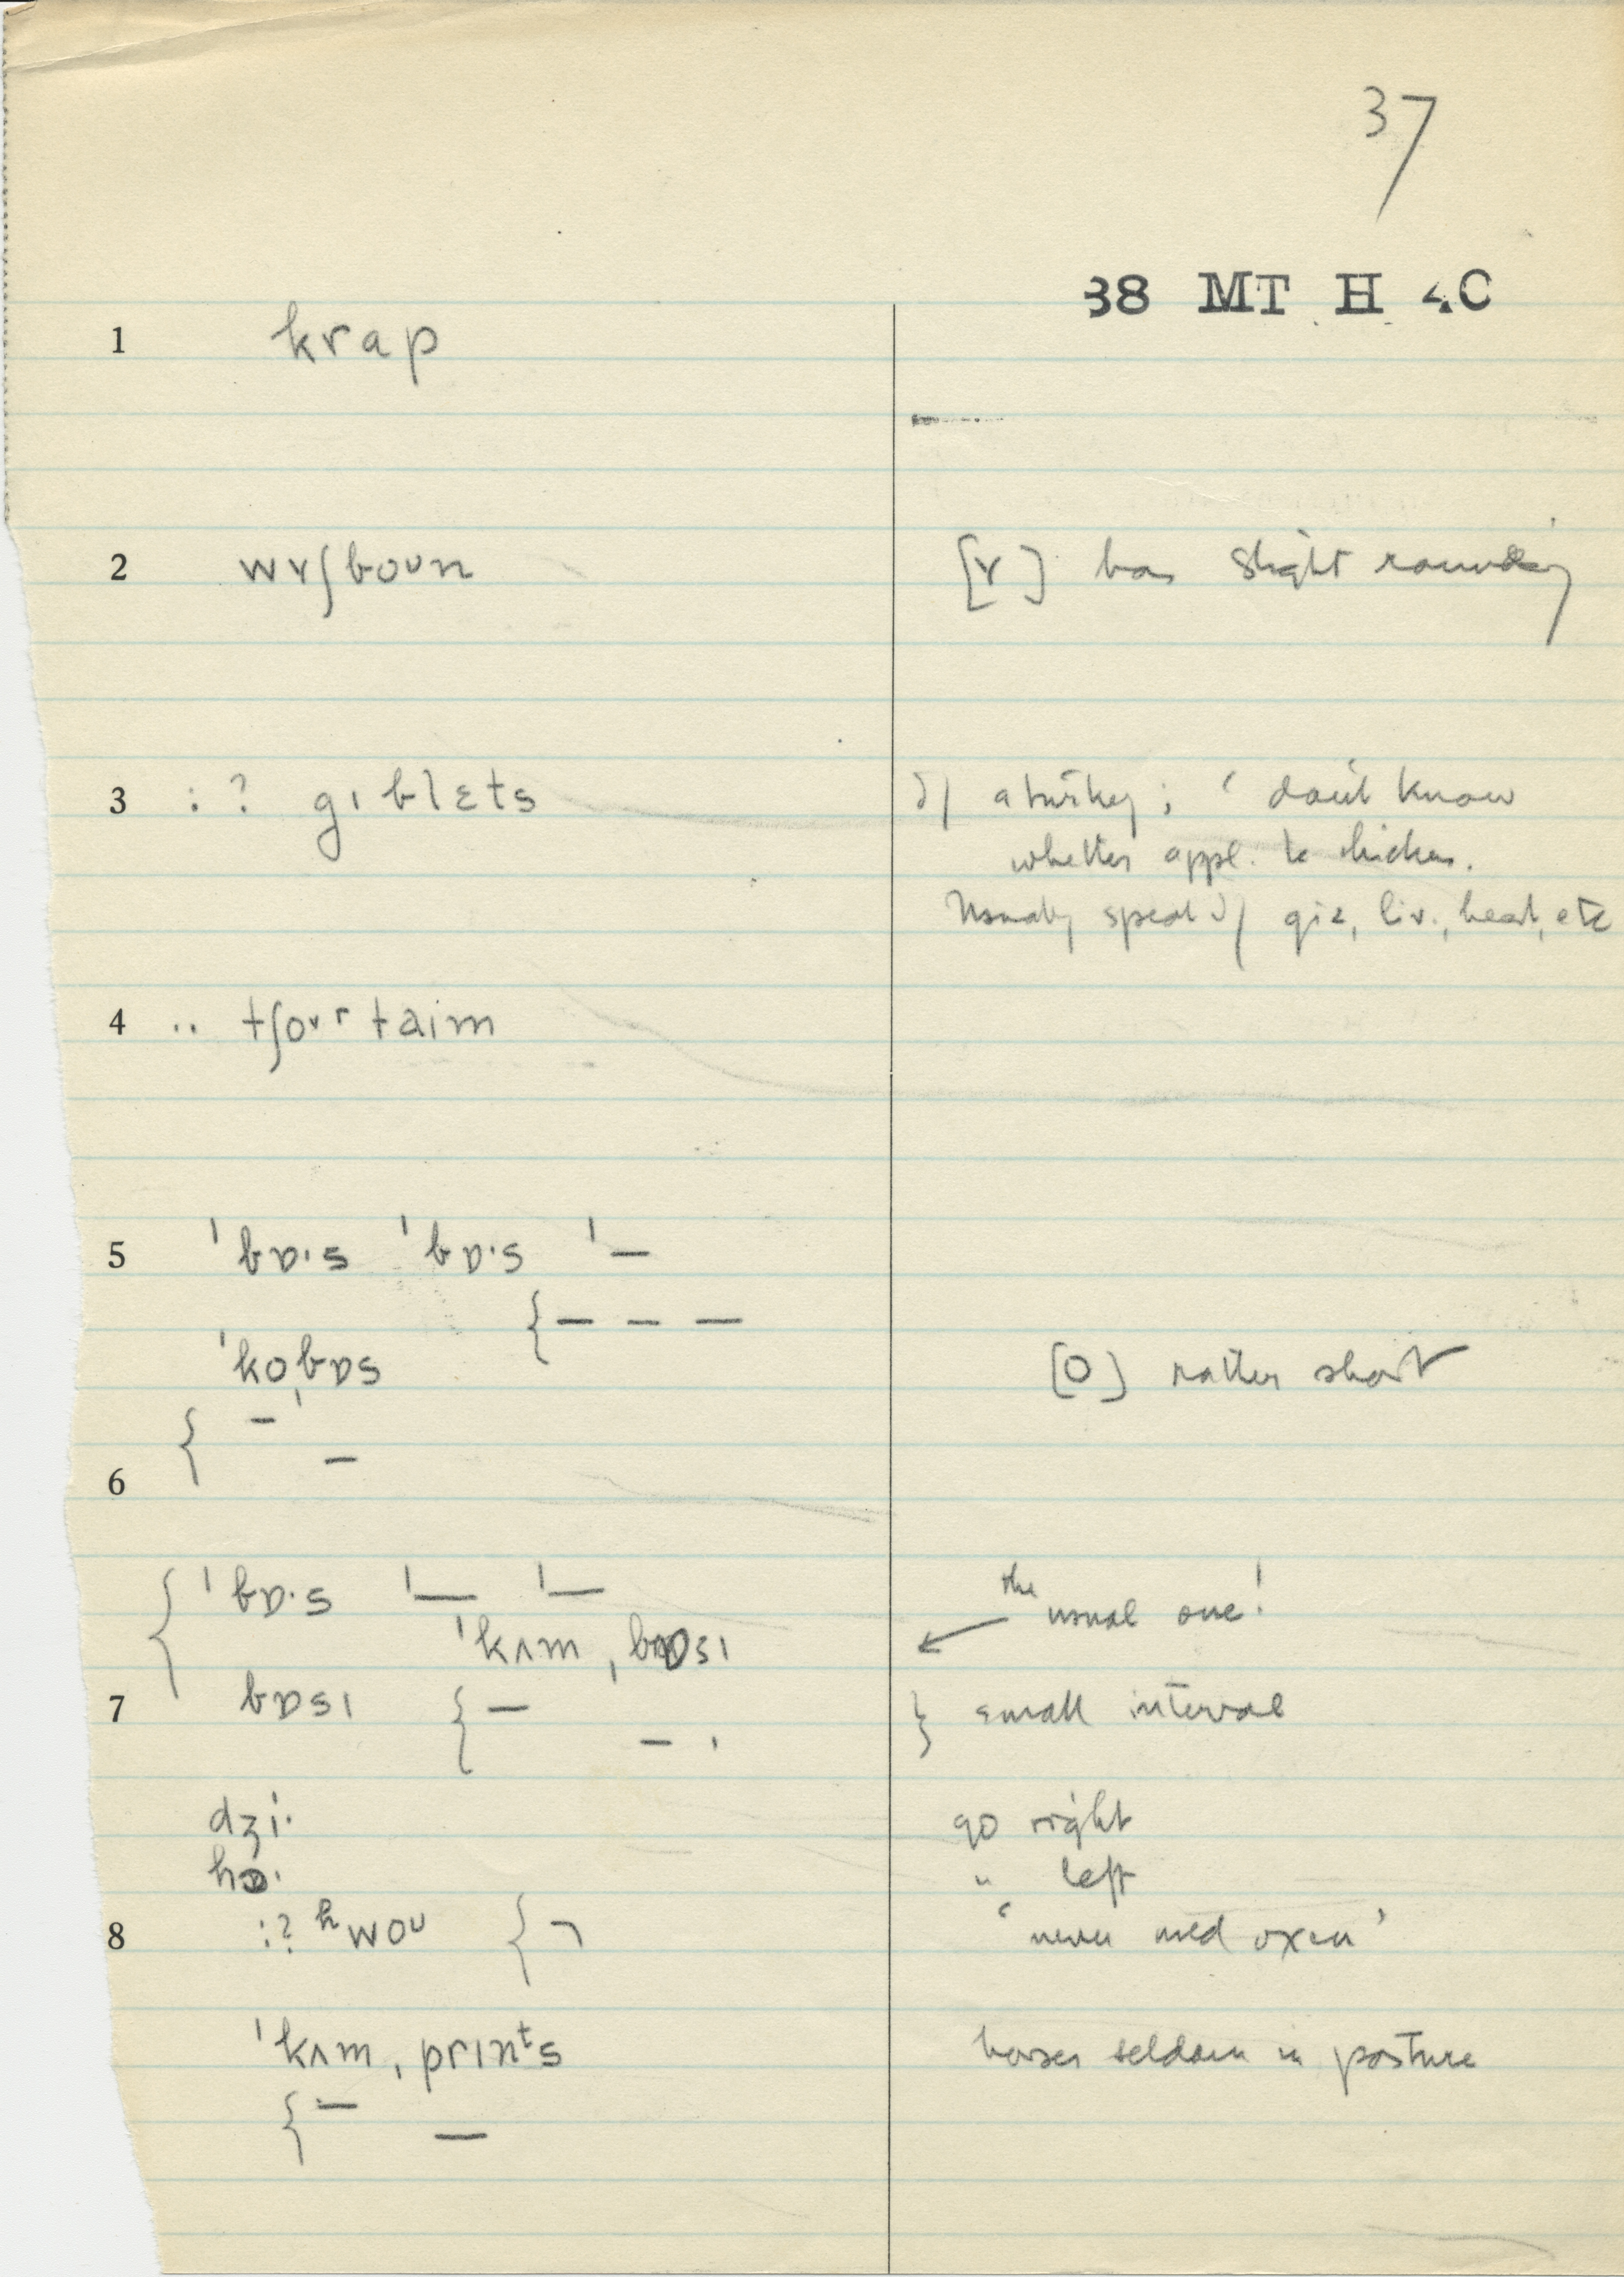 37
38 MT H 4C
1 krap
2 wɤʃboʊn [ɤ] has slight rounding
3 :? gɪblɛts of a turkey; ‘don't know
whether appl. to chicken.
Usually speak of giz, liv., heart, etc
4 .. tʃoɤr taɪm
5 ˈbɒ·s ˈbɒ·s ˈ—
{— — —
ˈkoˌbɒs [o] rather short
{ — —
6
{ ˈbɒ·s ˈ— ˈ— the usual one!
ˈkʌmˌbɒsɪ ←
7 bɒsɪ { — — } small interval
dʒi· go right
hɒ· " left
8 :? ʰwoᴜ { ¬ ‘never used oxen’
ˈkʌmˌprɪnᵗs horses seldom in pasture
{ — —